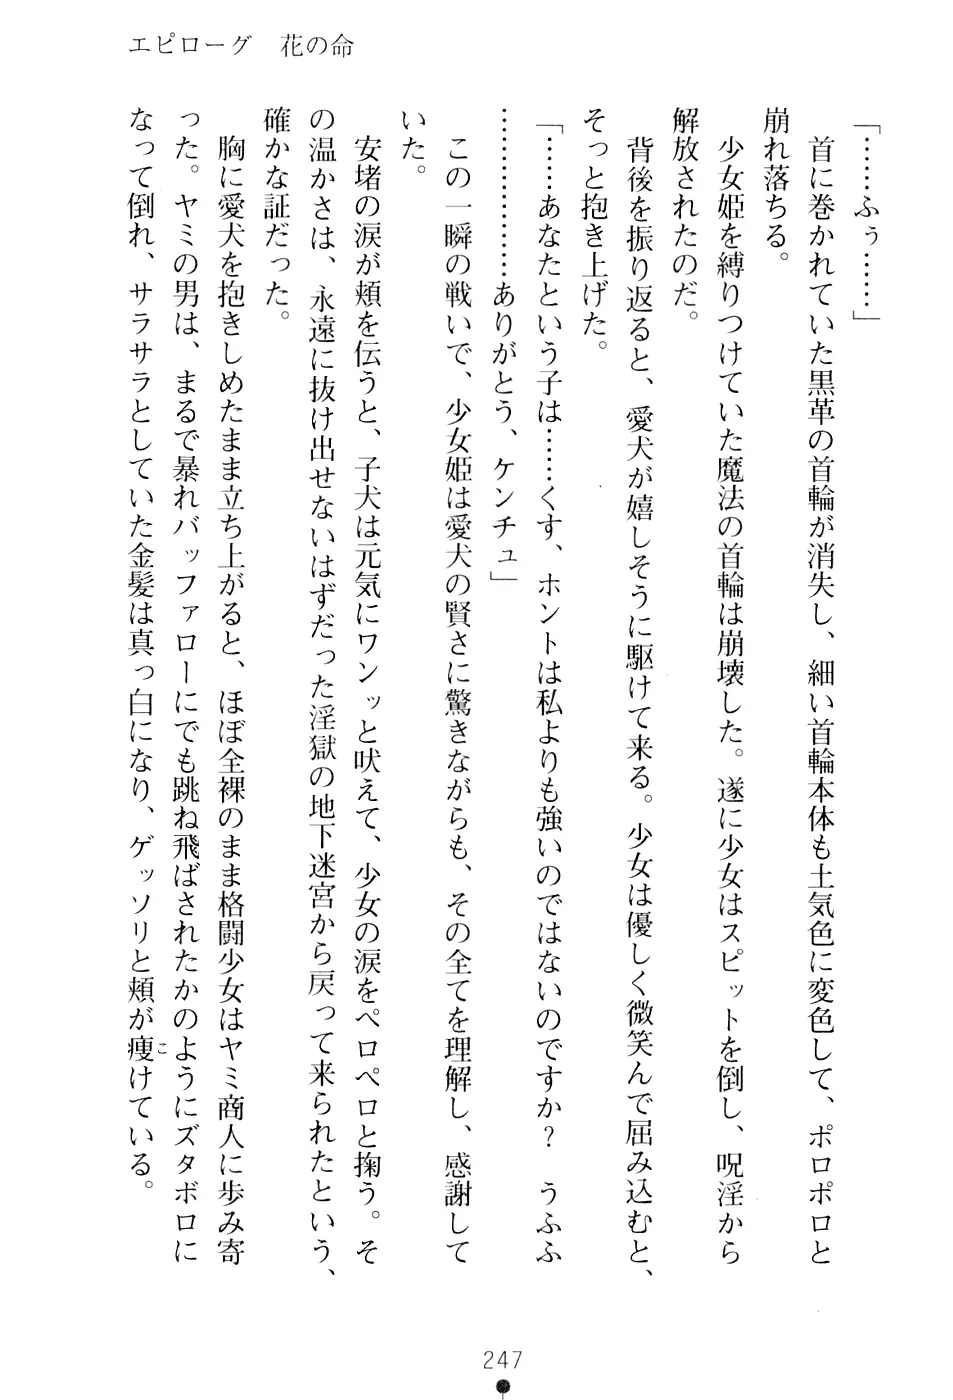 エピローグ　花の命
「……ふぅ……」
　首に巻かれていた黒革の首輪が消失し、細い首輪本体も土気色に変色して、ポロポロと
崩れ落ちる。
　少女姫を縛りつけていた魔法の首輪は崩壊した。遂に少女はスピットを倒し、呪淫から
解放されたのだ。
　背後を振り返ると、愛犬が嬉しそうに駆けて来る。少女は優しく微笑んで屈み込むと、
そっと抱き上げた。
「……あなたという子は……くす、ホントは私よりも強いのではないのですか？　うふふ
……………ありがとう、ケンチュ」
　この一瞬の戦いで、少女姫は愛犬の賢さに驚きながらも、その全てを理解し、感謝して
いた。
　安堵の涙が頬を伝うと、子犬は元気にワンッと吠えて、少女の涙をペロペロと掬う。そ
の温かさは、永遠に抜け出せないはずだった淫獄の地下迷宮から戻って来られたという、
確かな証だった。
　胸に愛犬を抱きしめたまま立ち上がると、ほぼ全裸のまま格闘少女はヤミ商人に歩み寄
った。ヤミの男は、まるで暴れバッファローにでも跳ね飛ばされたかのようにズタボロに
なって倒れ、サラサラとしていた金髪は真っ白になり、ゲッソリと頬が痩こけている。
247